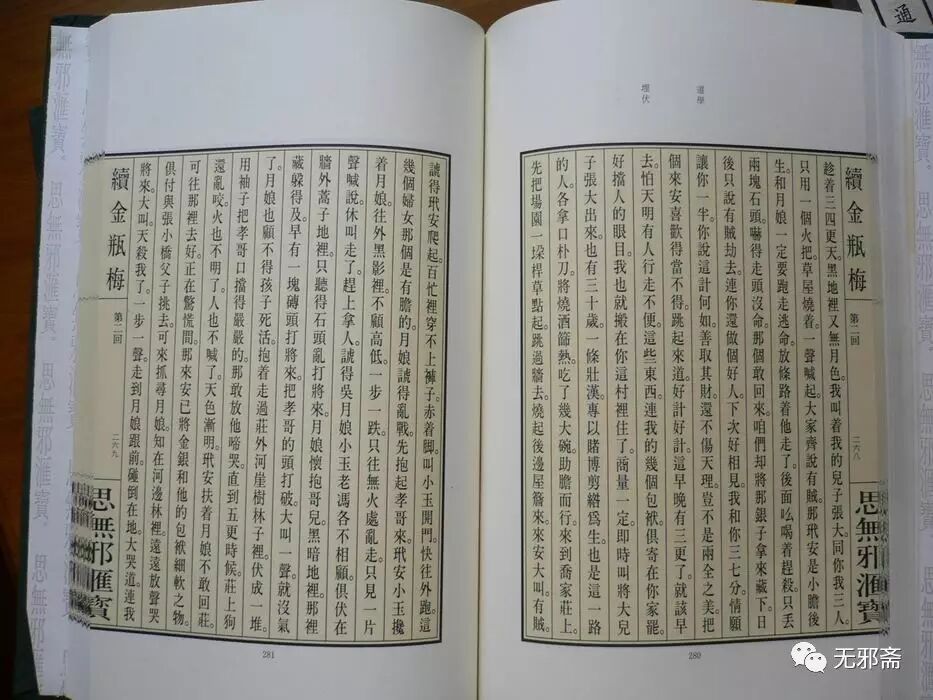 通
道學
埋伏
續金瓶梅 第二回 二六八
思無邪滙寶
趁着三四更天黑地裡又無月色。我叫着我的兒子張大。同你我三人。
只用一個火把。草屋燒着。一聲喊起。大家齊說有賊。那玳安是小膽後
生。和月娘一定要跑走逃命。放條路着他走了。後面吆喝着趕殺。只丟
兩塊石頭。嚇得走頭沒命。那個敢回來。咱們却將那銀子拿來藏下。日
後只說有賊劫去。連你還做個好人。下次好相見。我和你三七分。情願
讓你一半。你說這計何如。善取其財。還不傷天理。豈不是兩全之美。把
個來安喜歡得當不得。跳起來道。好計好計。這早晚有三更了。就該早
去。怕天明有人行走不便。這些東西。連我的幾個包袱。俱寄在你家罷。
好擋人的眼目。我也就搬在你這村裡住了。商量一定。即時叫將大兒
子張大出來。也有三十歲。一條壯漢。專以賭博剪綹爲生。也是這一路
的人。各拿口朴刀。將燒酒篩熱。吃了幾大碗助膽而行。來到喬家莊上。
先把場園一垜稈草點起。跳過牆去。燒起後邊屋簷來。來安大叫。有賊。
280
諕得玳安爬起。百忙裡穿不上褲子。赤着脚。叫小玉開門。快往外跑。這
幾個婦女。那個是有膽的。月娘諕得亂戰。先抱起孝哥來。玳安小玉攙
着月娘。往外黑影裡。不顧高低。一步一跌。只往無火處亂走。只見一片
聲喊說。休叫走了。趕上拿人。諕得吳月娘小玉老馮。各不相顧。俱伏在
牆外蒿子地裡。只聽得石頭亂打將來。月娘懷抱哥兒。黑暗地裡。那裡
藏躲得及。早有一塊磚頭打將來。把孝哥的頭打破。大叫一聲。就沒氣
了。月娘也顧不得孩子死活。抱着走過莊外河崖樹林子裡。伏成一堆。
用袖子把孝哥口擋得嚴嚴的。那敢放他啼哭。直到五更時候。莊上狗
還亂咬。火也不明了。人也不喊了。天色漸明。玳安扶着月娘。不敢回莊。
可往那裡去好。正在驚慌間。那來安已將金銀和他的包袱細軟之物。
俱付與張小橋父子挑去。可來抓尋月娘。知在河邊林裡。遠遠放聲哭
將來。大叫。天殺我了。一步一聲。走到月娘跟前。碰倒在地。大哭道。連我
續金瓶梅 第二回 二六九
思無邪滙寶
281
無邪滙寶。思無邪滙寶。
無邪滙寶。思無邪滙寶。
无邪斋